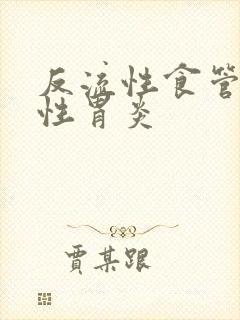 反流性食管
性胃炎
贾某跟